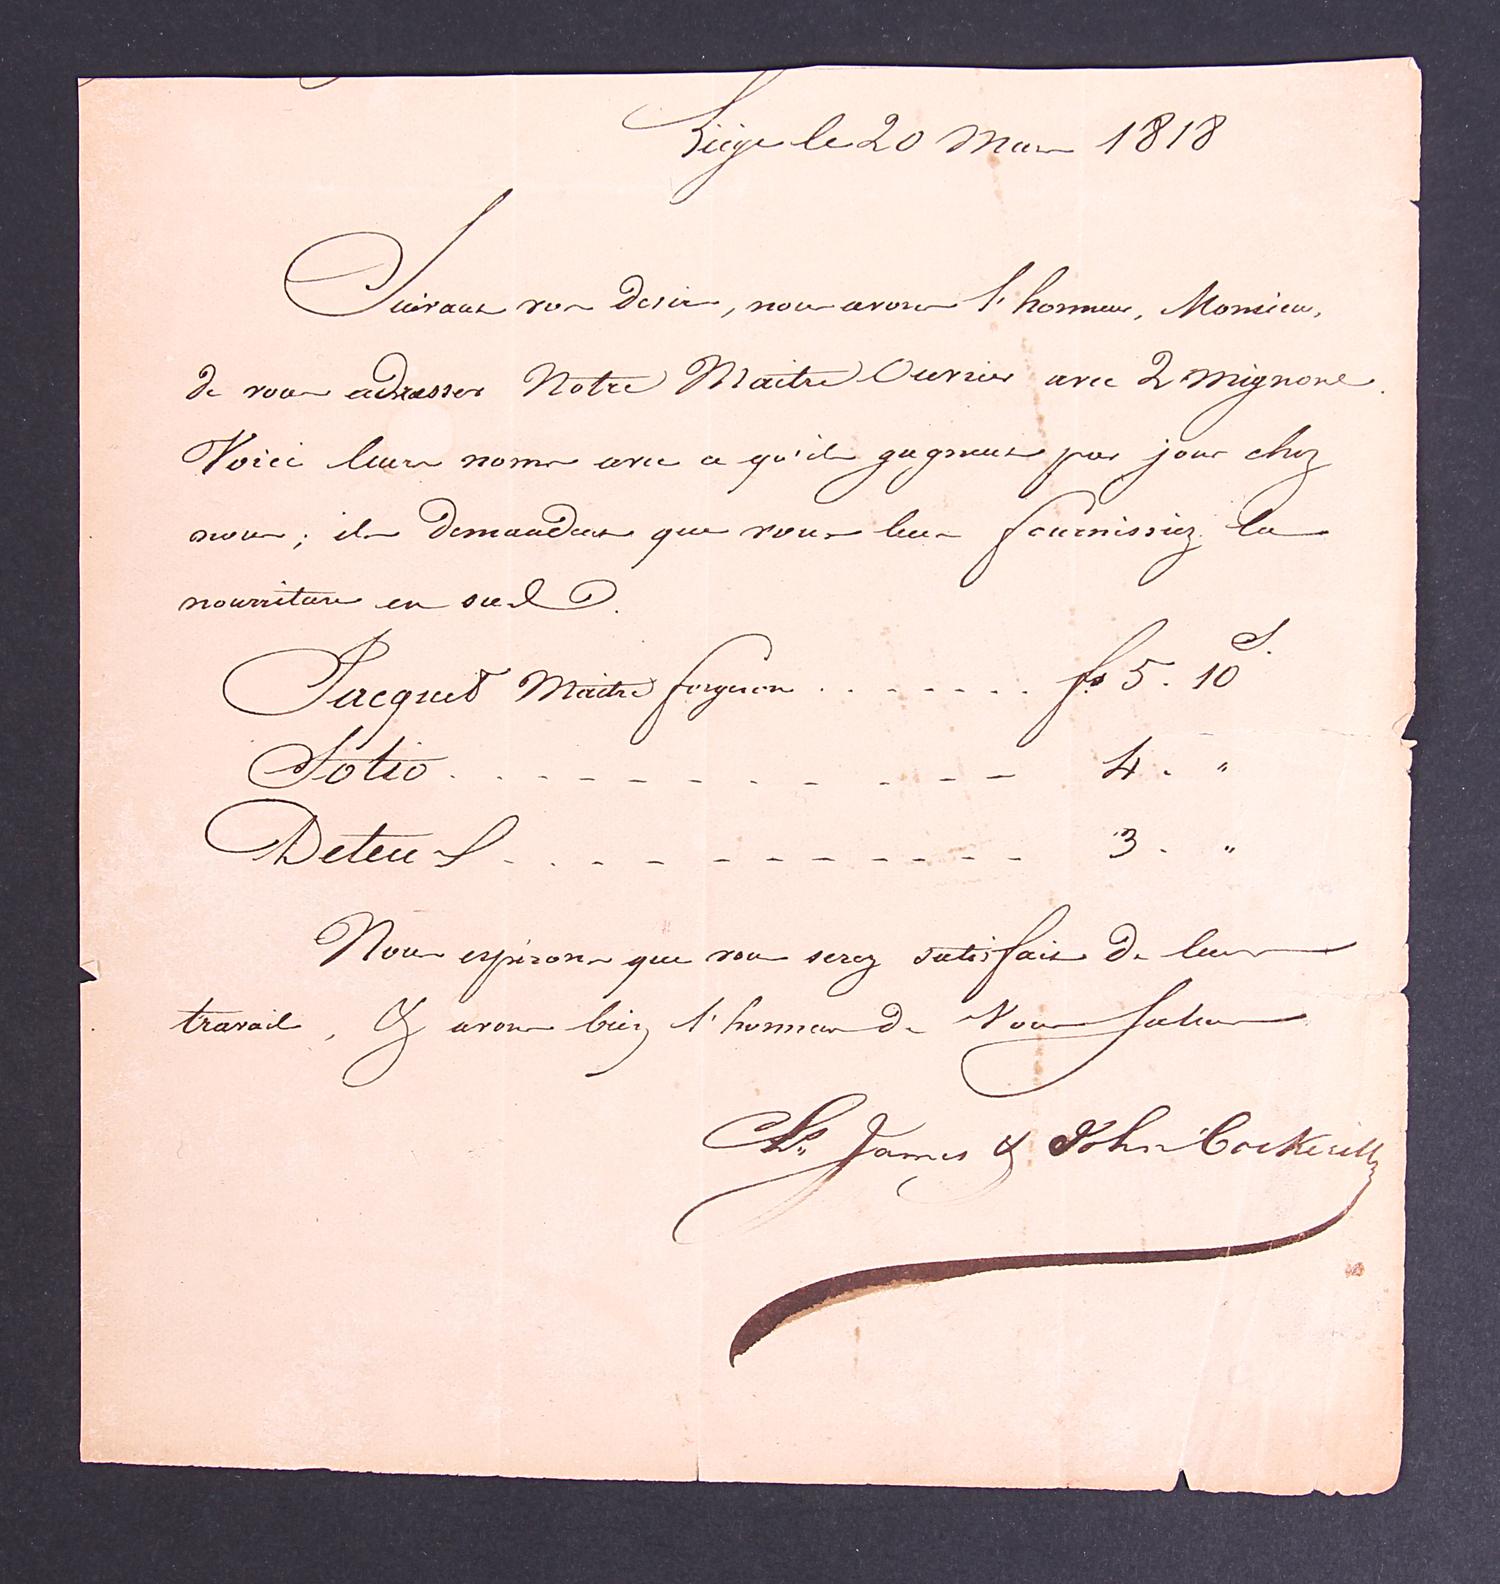 Liège le 20 Mars 1818
Suivant vos desirs, nous avons l'honneur, Monsieur,
de vous adresser Notre Maitre Ouvrier avec 2 mignons.
Voici leurs noms avec ce qu'ils gagnent par jour chez
nous; ils demandent que vous leur fournissiez la
nourriture en sus.
Jacquet Maitre forgeron . . . . . . . . fs 5. 10 S.
Sotio . . . . . . . . . . . . . 4. "
Deteu . . . . . . . . . . . . . 3. "
Nous espérons que vous serez satisfait de leur
travail, & avons bien l'honneur de Vous saluer
Chs James & John Cockerill